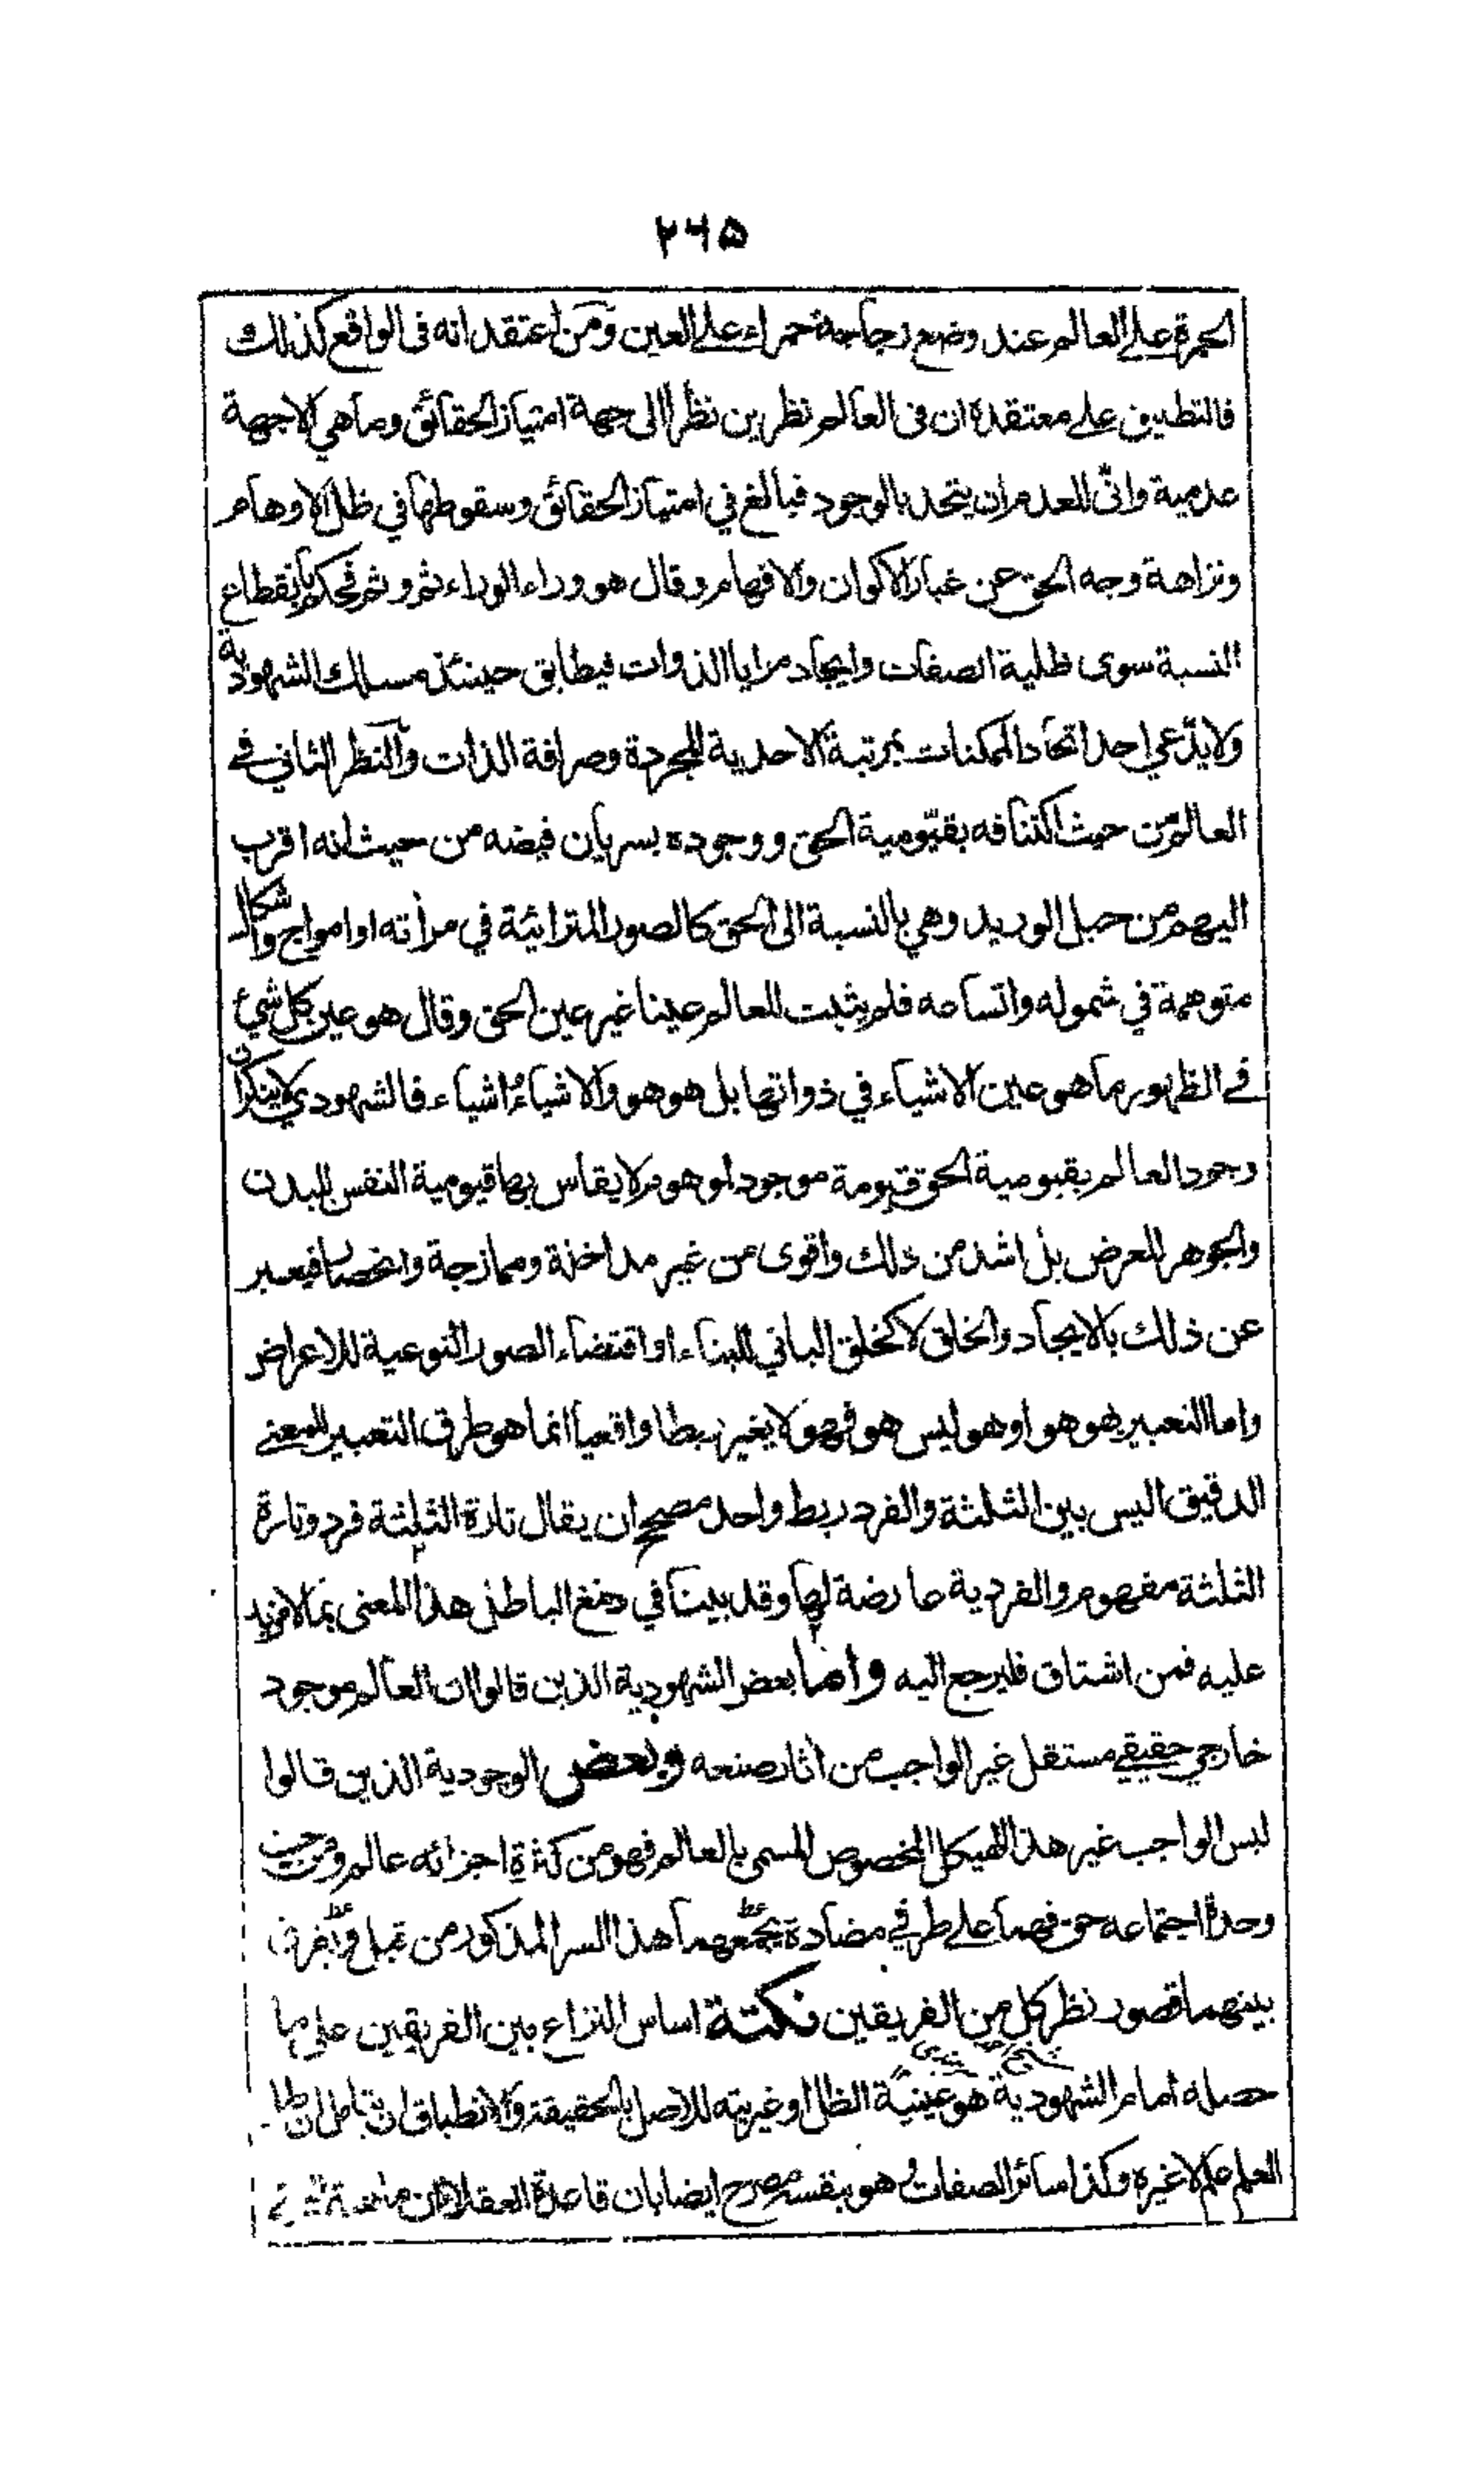 ٢٦٥
الحمرة على العالم عند وضع زجاجة حمراء على العين ومن اعتقد انه فى الواقع كذلك
فالتطبيق على معتقده ان فى العالم نظرين نظرا الى جهة امتياز الحقائق وما هي الا جهة
عدمية وانّى للعدم ان يتحد بالوجود فبالغ في امتياز الحقائق وسقوطها في ظلال الاوهام
ونزاهة وجه الحق عن غبار الاكوان والافهام وقال هو وراء الوراء ثم وثم فحكم بانقطاع
النسبة سوى ظلية الصفات وايجاد مرايا الذوات فيطابق حينئذ مسلك الشهودية
ولا يدّعي احد اتحاد الممكنات بمرتبة الاحدية المجردة وصرافة الذات والنظر الثاني في
العالم من حيث اكتنافه بقيّومية الحق ووجوده بسريان فيضه من حيث انه اقرب
اليهم من حبل الوريد وهي بالنسبة الى الحق كالصور المترائية في مرأته او امواج واشكال
متوهمة في شموله واتساعه فلم يثبت للعالم عينا غير عين الحق وقال هو عين كل شئ
في الظهور ما هو عين الاشياء في ذواتها بل هو هو والاشياءُ اشياء فالشهودي لا ينكر ان
وجود العالم بقيومية الحق قيومة موجود لو هوم لا يقاس بها قيومية النفس للبدن
والجوهر للعرض بل اشد من ذلك واقوى من غير مداخلة وممازجة وانحصار فيعبر
عن ذلك بالايجاد والخلق لا كخلق الباني للبناء او اقتضاء الصور النوعية للاعراض
واما التعبير بهو هو او هو ليس هو فهو لا يغير ربطا واقعيا انما هو طرق التعبير للمعنى
الدقيق اليس بين الثلثة والفرد ربط واحد مصحح ان يقال تارة الثلثة فرد وتارة
الثلثة مفهوم والفردية عارضة لها وقد بينا في دمغ الباطل هذا المعنى بما لا مزيد
عليه فمن اشتاق فليرجع اليه واما بعض الشهودية الذين قالوا ان العالم موجود
خارجي حقيقي مستقل غير الواجب من أثار صنعه وبعض الوجودية الذين قالوا
ليس الواجب غير هذا الهيكل المخصوص المسمى بالعالم فهو من كثرة اجزائه عالم ومن حيث
وحدة اجتماعه حق فهما على طرفي مضادة يجمعهما هذا السر المذكور من قبل ويفرق
بينهما قصور نظر كل من الفريقين نكتة اساس النزاع بين الفريقين على ما
حصله امام الشهودية هو عينية الظل او غيريته للاصل بالحقيقة والانطباق ان ظل
العلم علم لا غيره وكذا سائر الصفات وهو بنفسه مصرح ايضا بان قاعدة العقلاء ان